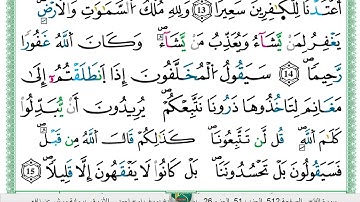 أَعْتَدْنَا لِلْكَٰفِرِينَ سَعِيرًا ١٣ وَلِلَّهِ مُلْكُ السَّمَٰوَٰتِ وَالْأَرْضِ
يَغْفِرُ لِمَنْ يَشَآءُ وَيُعَذِّبُ مَنْ يَشَآءُ وَكَانَ اللَّهُ غَفُورًا
رَحِيمًا ١٤ سَيَقُولُ الْمُخَلَّفُونَ إِذَا انْطَلَقْتُمُۥٓ إِلَىٰ
مَغَانِمَ لِتَاخُذُوهَا ذَرُونَا نَتَّبِعْكُمْ يُرِيدُونَ أَنْ يُبَدِّلُوا
كَلَٰمَ اللَّهِ قُل لَّن تَتَّبِعُونَا كَذَٰلِكُمْ قَالَ اللَّهُ مِن قَبْلُ
فَسَيَقُولُونَ بَلْ تَحْسُدُونَنَا بَلْ كَانُوا لَا يَفْقَهُونَ إِلَّا قَلِيلًا ١٥